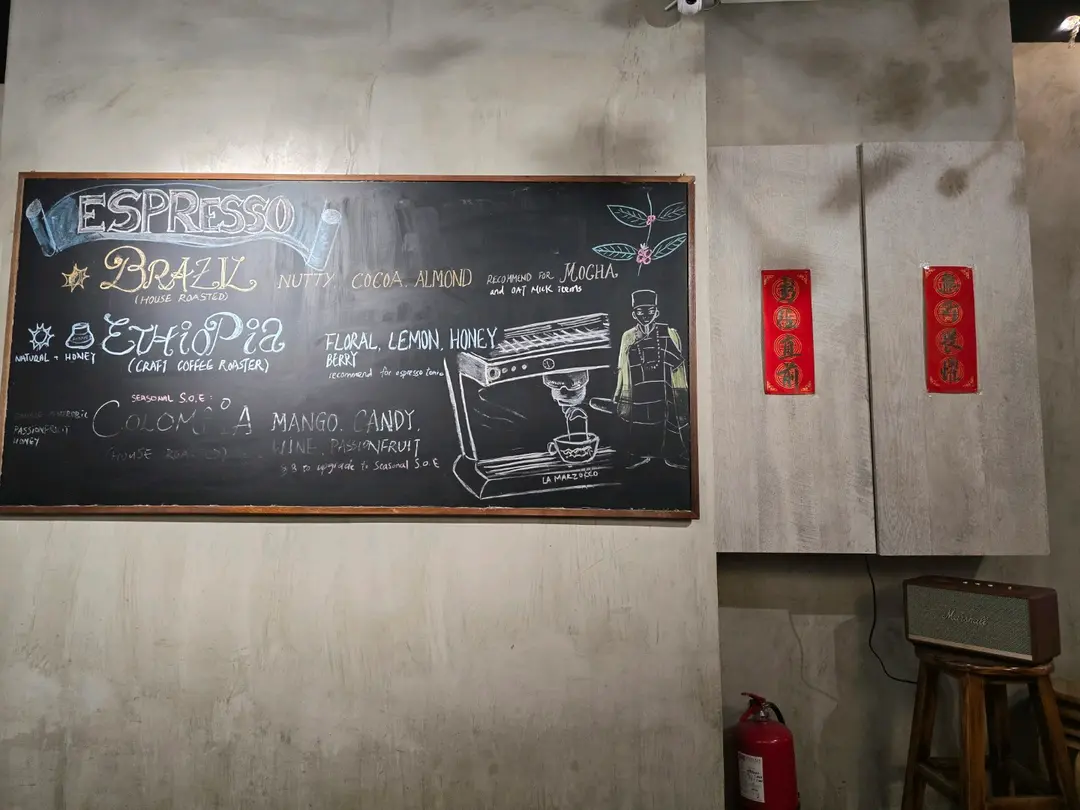 ESPRESSO
BRAZIL
(HOUSE ROASTED)
NUTTY COCOA. ALMOND
RECOMMEND FOR MOCHA
and OAT MILK items
NATURAL + HONEY
ETHIOPIA
(CRAFT COFFEE ROASTER)
FLORAL, LEMON, HONEY,
BERRY
recommend for espresso tonic
SEASONAL S.O.E :
PASSIONFRUIT
HONEY
COLOMBIA
(HOUSE ROASTED)
MANGO. CANDY,
WINE, PASSIONFRUIT
to upgrade to Seasonal S.O.E
LA MARZOCCO
勇往直前
Marshall